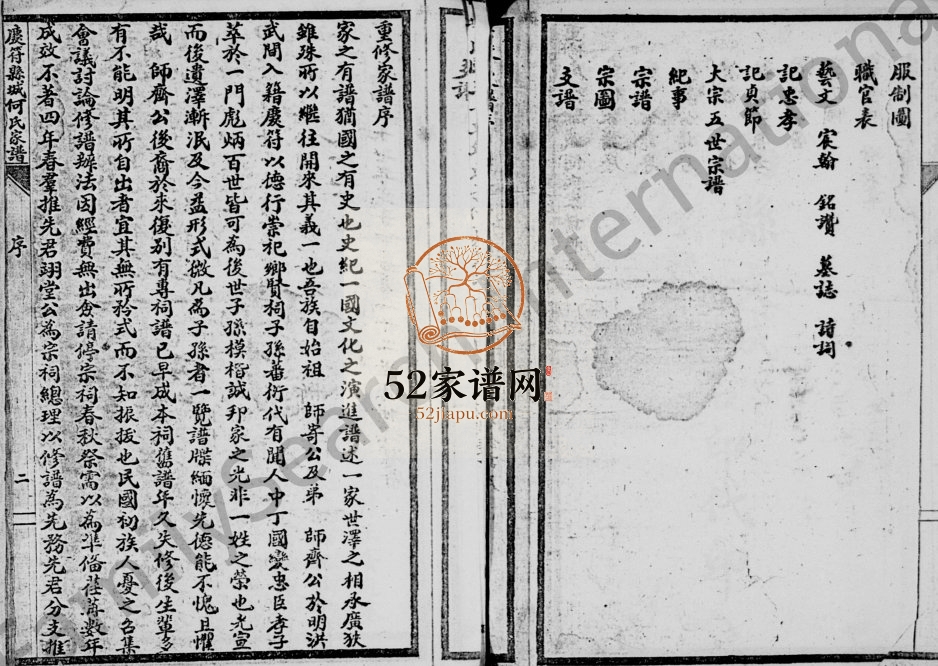 服制圖
職官表
藝文 宸翰 銘讚 墓誌 詩詞
記忠孝
記貞節
大宗五世宗譜
紀事
宗譜
宗圖
支譜
重修家譜序
家之有譜猶國之有史也史紀一國文化之演進譜述一家世澤之相承廣狹
雖殊所以繼往開來其義一也吾族自始祖 師寄公及弟 師齊公於明洪
武間入籍慶符以德行崇祀鄉賢祠子孫蕃衍代有聞人中丁國變忠臣孝子
萃於一門彪炳百世皆可為後世子孫模楷誠邦家之光非一姓之榮也光宣
而後遺澤漸泯及今益形式微凡為子孫者一覽譜牒緬懷先德能不愧且懼
哉 師齊公後裔於來復別有專祠譜已早成本祠舊譜年久失修後生輩多
有不能明其所自出者宜其無所矜式而不知振拔也民國初族人憂之召集
會議討論修譜辦法因經費無出僉請停宗祠春秋祭需以為準備荏苒數年
成效不著四年春羣推先君翊堂公為宗祠總理以修譜為先務先君分支推
慶符縣城何氏家譜
序
二
52家谱网
52jiapu.com
FamilySearch International